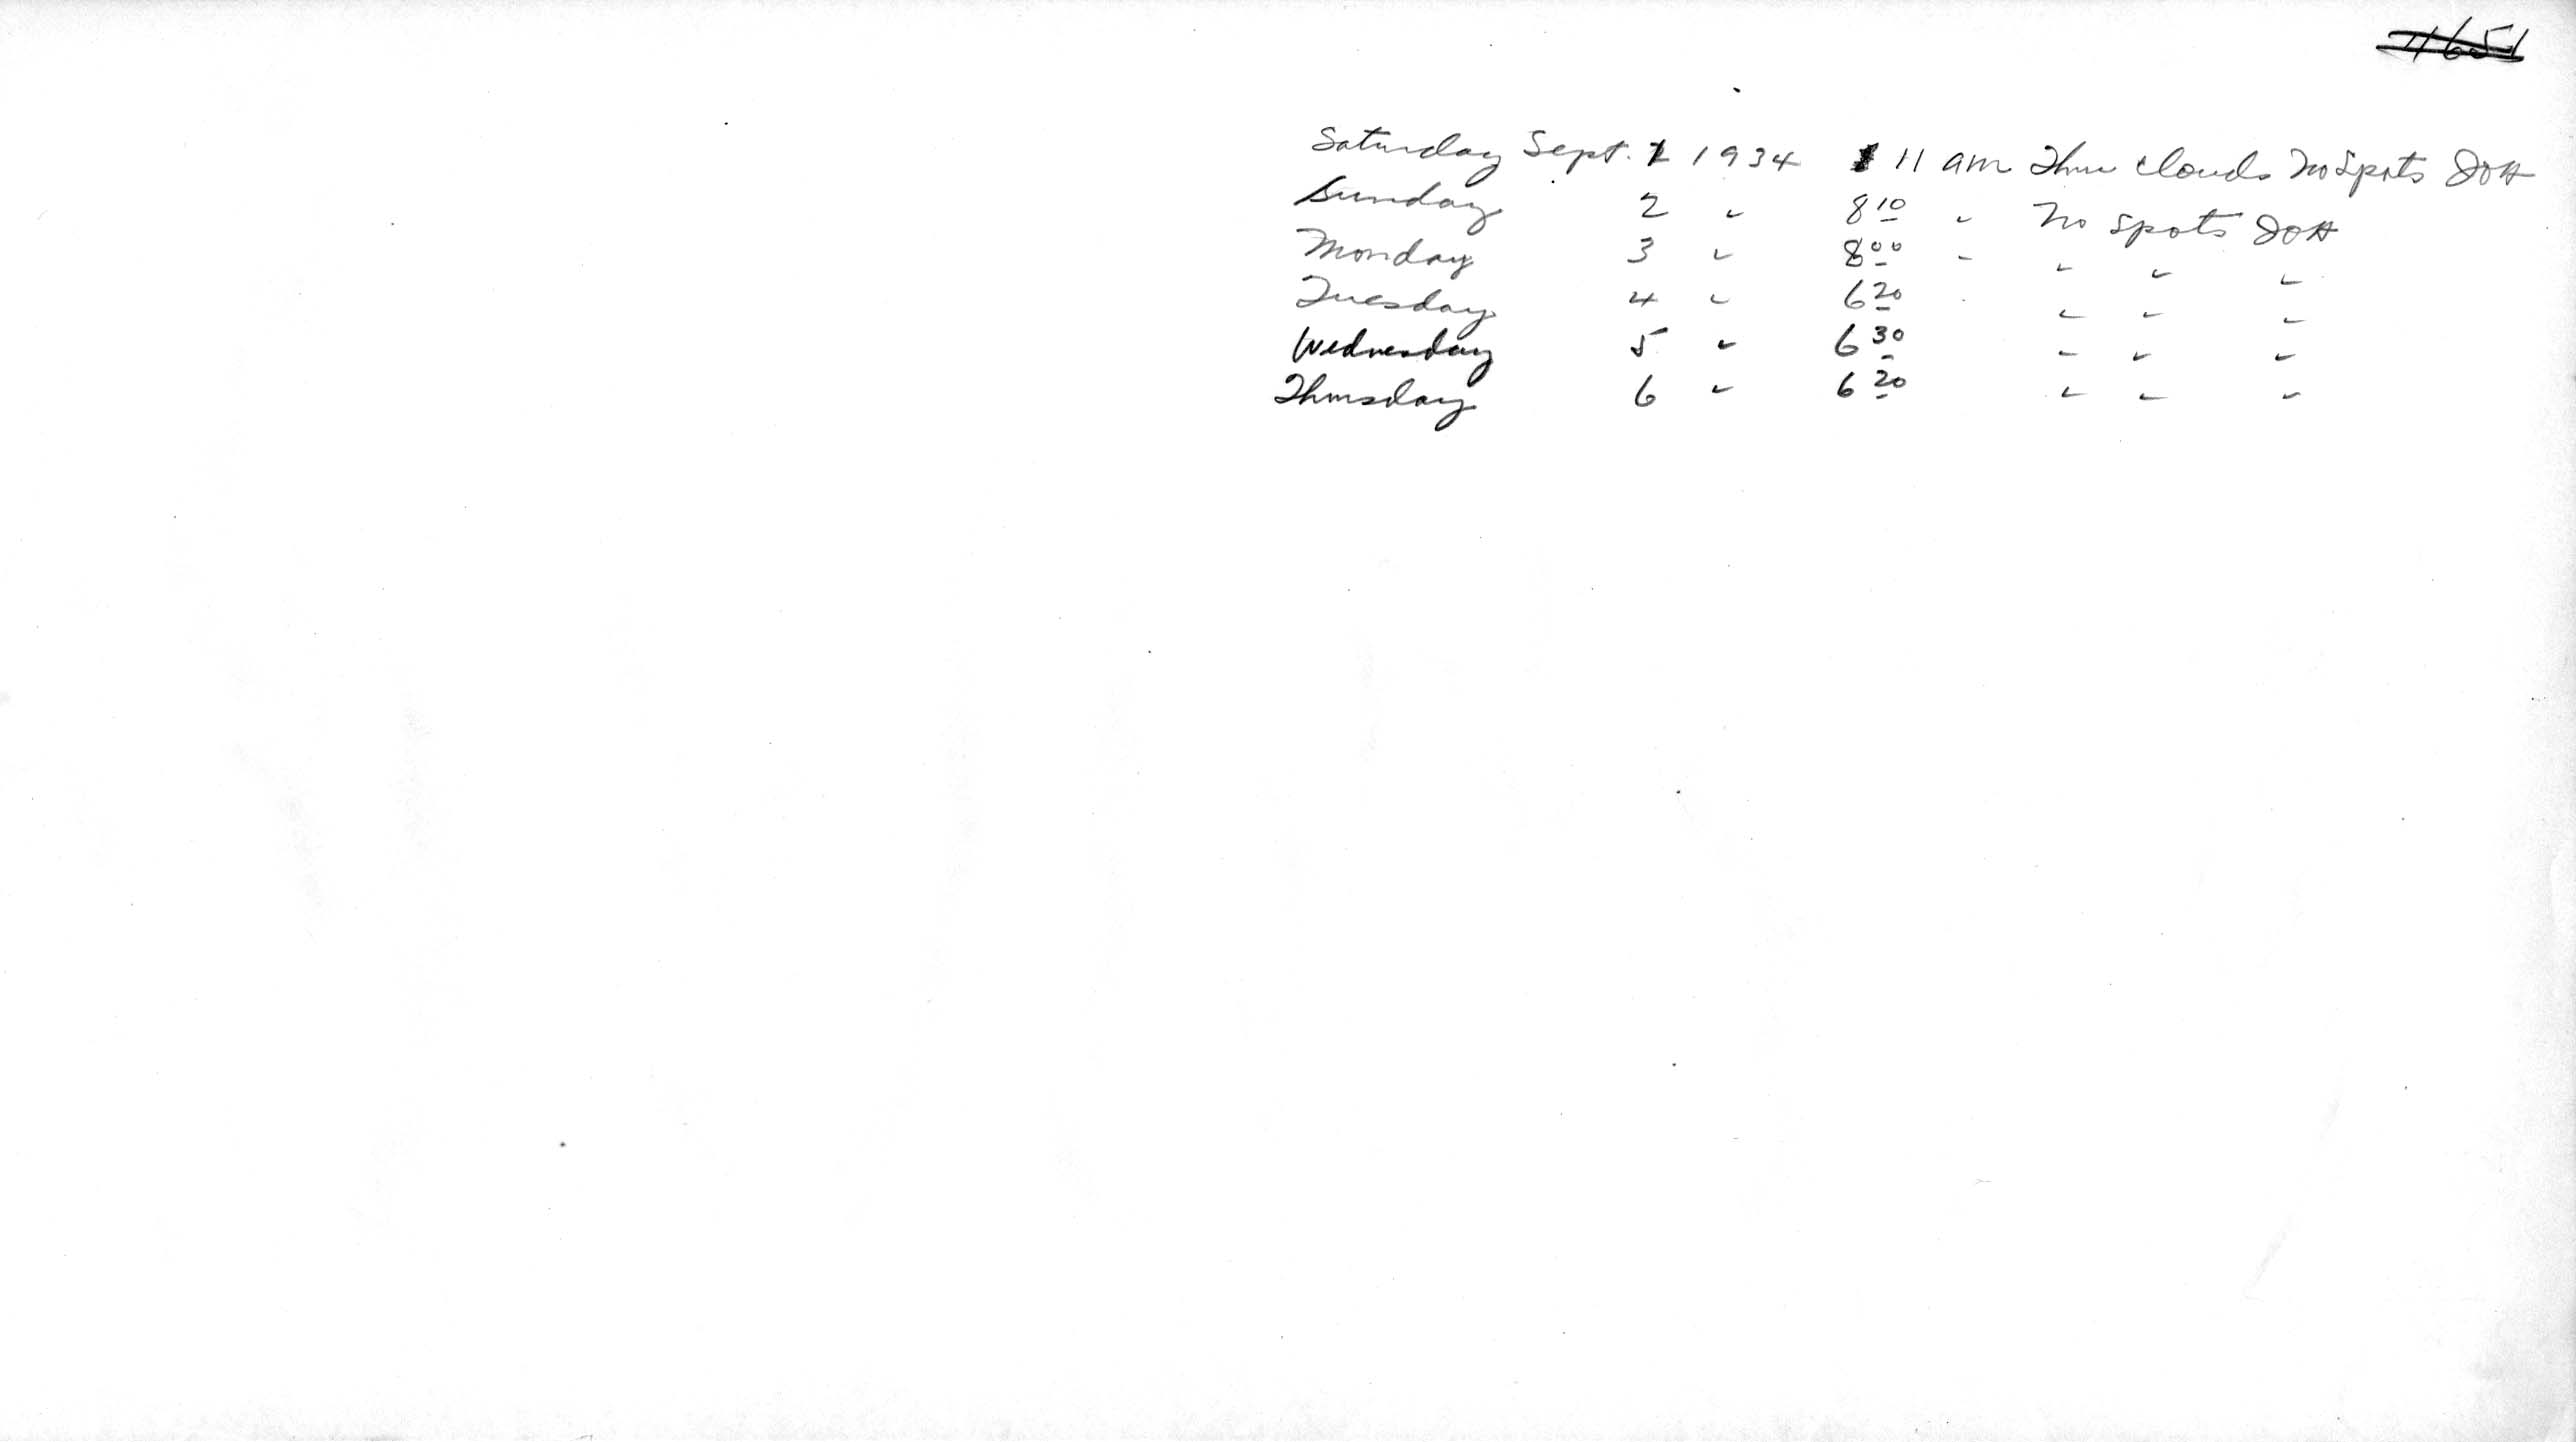 11651
Saturday Sept. 1 1934 11 am Thru clouds No Spots JOH
Sunday 2 " 8 10 " No Spots JOH
Monday 3 " 8 00 " " " "
Tuesday 4 " 6 20 " " "
Wednesday 5 " 6 30 " " "
Thursday 6 " 6 20 " " "